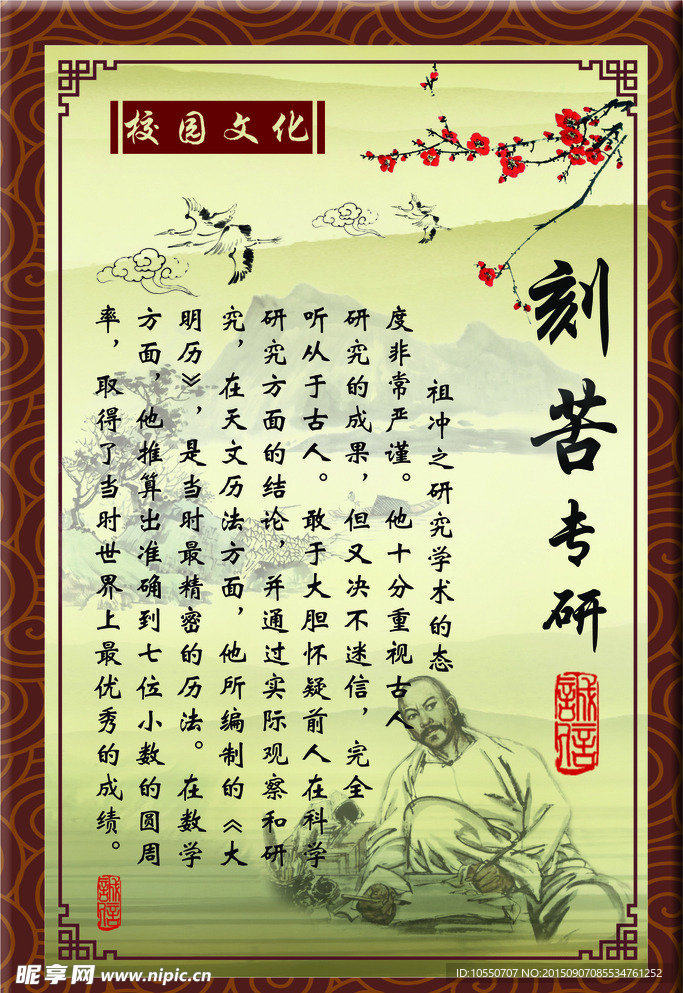 校园文化
刻苦专研
誠信
祖冲之研究学术的态
度非常严谨。他十分重视古人
研究的成果，但又决不迷信，完全
听从于古人。敢于大胆怀疑前人在科学
研究方面的结论，并通过实际观察和研
究，在天文历法方面，他所编制的《大
明历》，是当时最精密的历法。在数学
方面，他推算出准确到七位小数的圆周
率，取得了当时世界上最优秀的成绩。
誠信
昵享网 www.nipic.cn
ID:10550707 NO:20150907085534761252